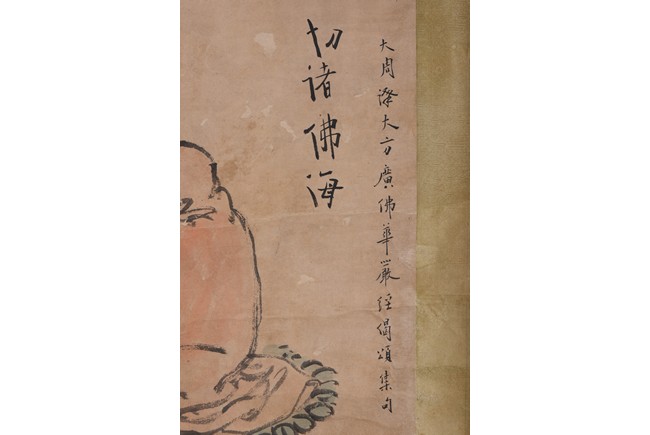 大周譯大方廣佛華嚴經偈頌集句
切諸佛海